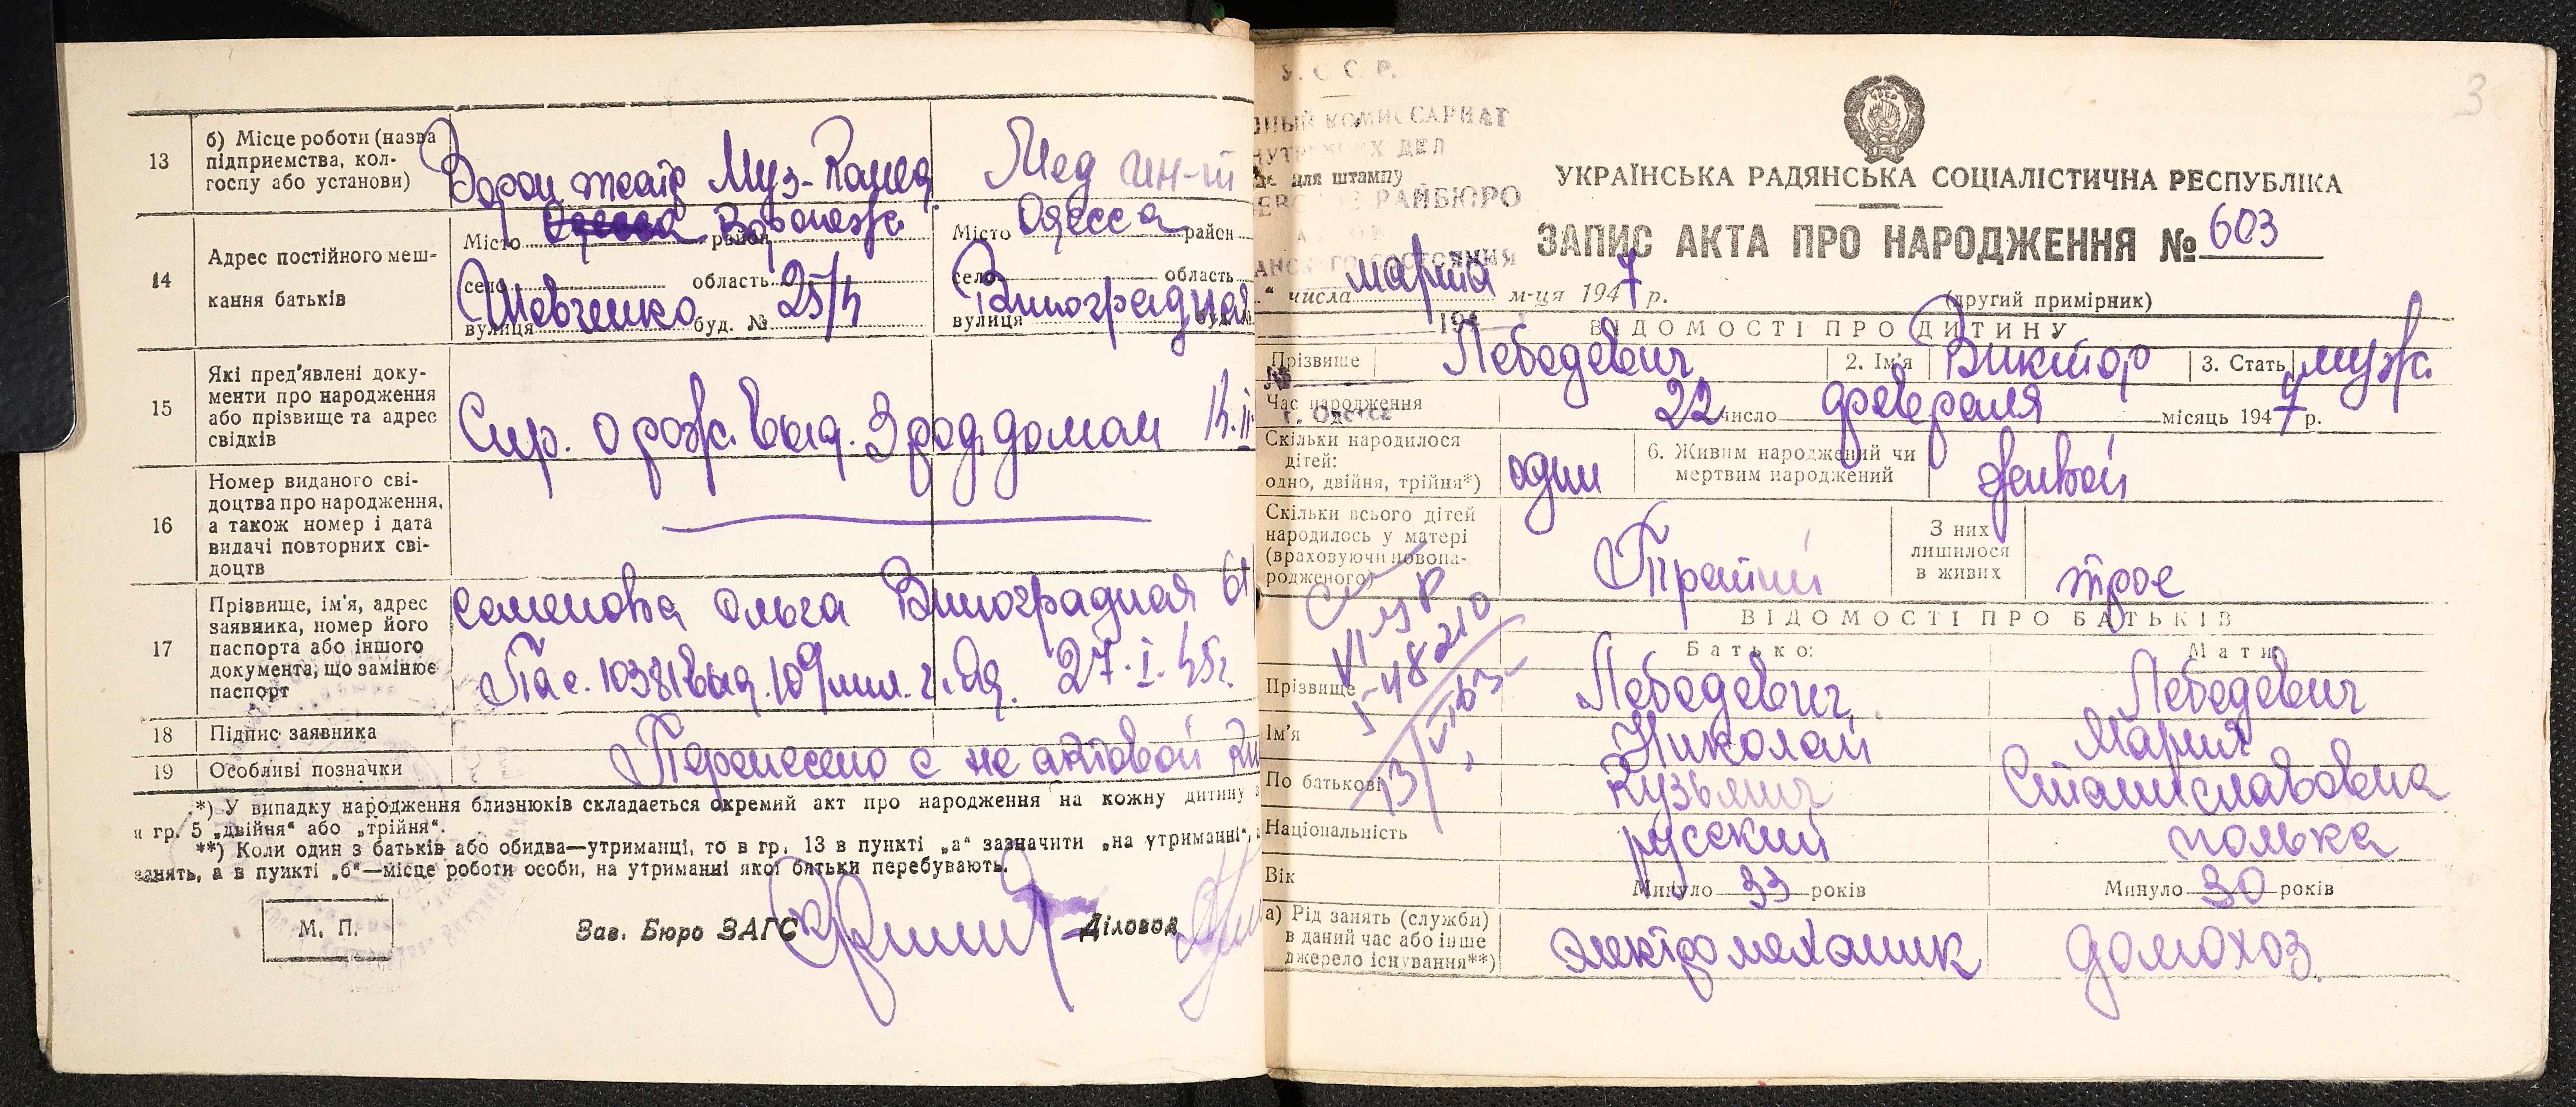 13
б) Місце роботи (назва
підприємства, кол-
госпу або установи)
Ворон театр Муз-Комед.
Мед ин-т
14
Адрес постійного меш-
кання батьків
Місто Одесса Воронеж район
село область
Шевченко 25/4
вулиця буд. №
Місто Одесса район
село область
Виноградная
вулиця буд. №
15
Які пред'явлені доку-
менти про народження
або прізвище та адрес
свідків
Спр. о рожд. выд. 3 род. домом
16
Номер виданого сві-
доцтва про народження,
а також номер і дата
видачі повторних сві-
доцтв
17
Прізвище, ім'я, адрес
заявника, номер його
паспорта або іншого
документа, що замінює
паспорт
Семенова Ольга Виноградная 61
Пас. 10381 выд. 10 9 мил. г. Од. 27.I.45г.
18
Підпис заявника
19
Особливі позначки
Перенесено с не актовой
*) У випадку народження близнюків складається окремий акт про народження на кожну дитину з
гр. 5 „двійня“ або „трійня“.
**) Коли один з батьків або обидва—утриманці, то в гр. 13 в пункті „а“ зазначити „на утриманні“,
занять, а в пункті „б“—місце роботи особи, на утриманні якої батьки перебувають.
М. П.
Зав. Бюро ЗАГС
Діловод
3
У. С. С. Р.
КОМИССАРИАТ
ДЕЛ
для штампу
РАЙБЮРО
г. Одесса
УКРАЇНСЬКА РАДЯНСЬКА СОЦІАЛІСТИЧНА РЕСПУБЛІКА
ЗАПИС АКТА ПРО НАРОДЖЕННЯ № 603
“ числа марта м-ця 1947 р.
(другий примірник)
ВІДОМОСТІ ПРО ДИТИНУ
Прізвище Лебедевич 2. Ім'я Виктор 3. Стать муж.
Час народження 22 число февраля місяць 1947 р.
Скільки народилося
дітей:
одно, двійня, трійня*)
один
6. Живим народжений чи
мертвим народжений
живой
Скільки всього дітей
народилось у матері
(враховуючи новона-
родженого)
Третий
З них
лишилося
в живих
трое
ВІДОМОСТІ ПРО БАТЬКІВ
Батько: Мати
Прізвище Лебедевич Лебедевич
Ім'я Николай Мария
По батькові Кузьмич Станиславовна
Національність русский полька
Вік Минуло 33 років Минуло 30 років
а) Рід занять (служби)
в даний час або інше
джерело існування**)
электромеханик домохоз.